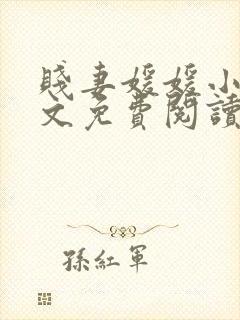 賤妻媛媛小
文免費閱讀
孫紅軍